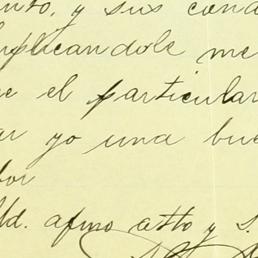 nto, y sus cond
uplicandole me
e el particular
ar yo una bue
bor
Ud. afmo atto y S.